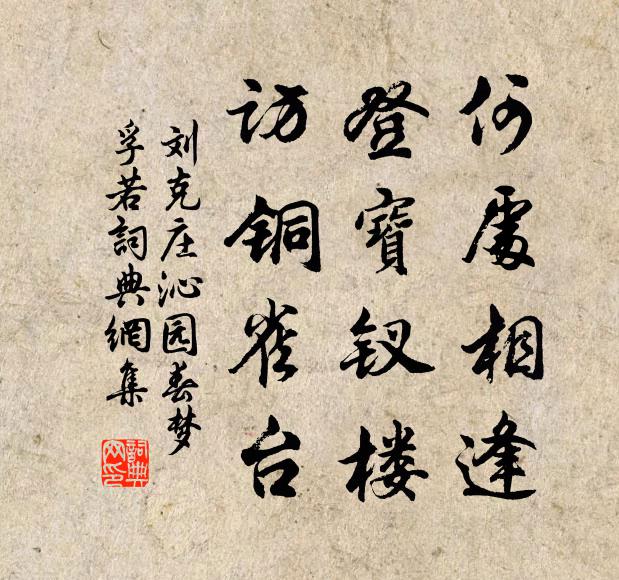 何處相逢
登寶钗楼
访铜雀台
刘克庄沁园春梦
孚若詞典網集
詞典
网印